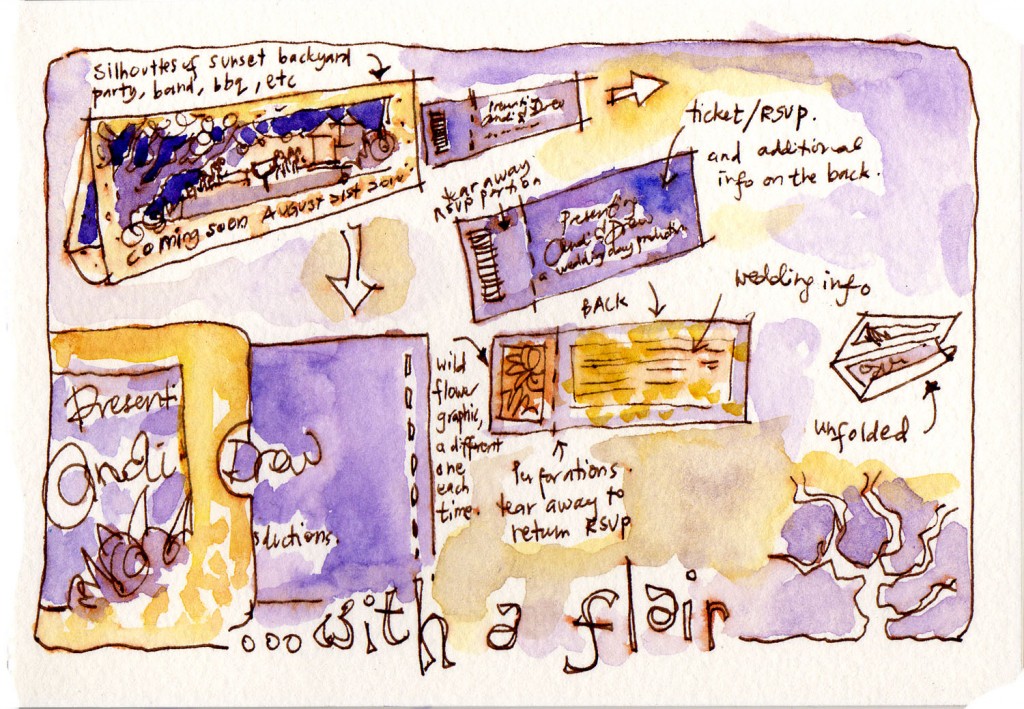 Silhouttes of sunset backyard
party, band, bbq, etc
coming soon August 31st 2010
Presenting
Andi & Drew
ticket/RSVP.
and additional
info on the back.
tear away
RSVP portion
Presenting
Andi & Drew
a wedding day production
BACK
wedding info
wild
flower
graphic,
a different
one
each
time.
Perforations.
tear away to
return RSVP
unfolded
Presenti
Andi Drew
oductions.
...with a flair